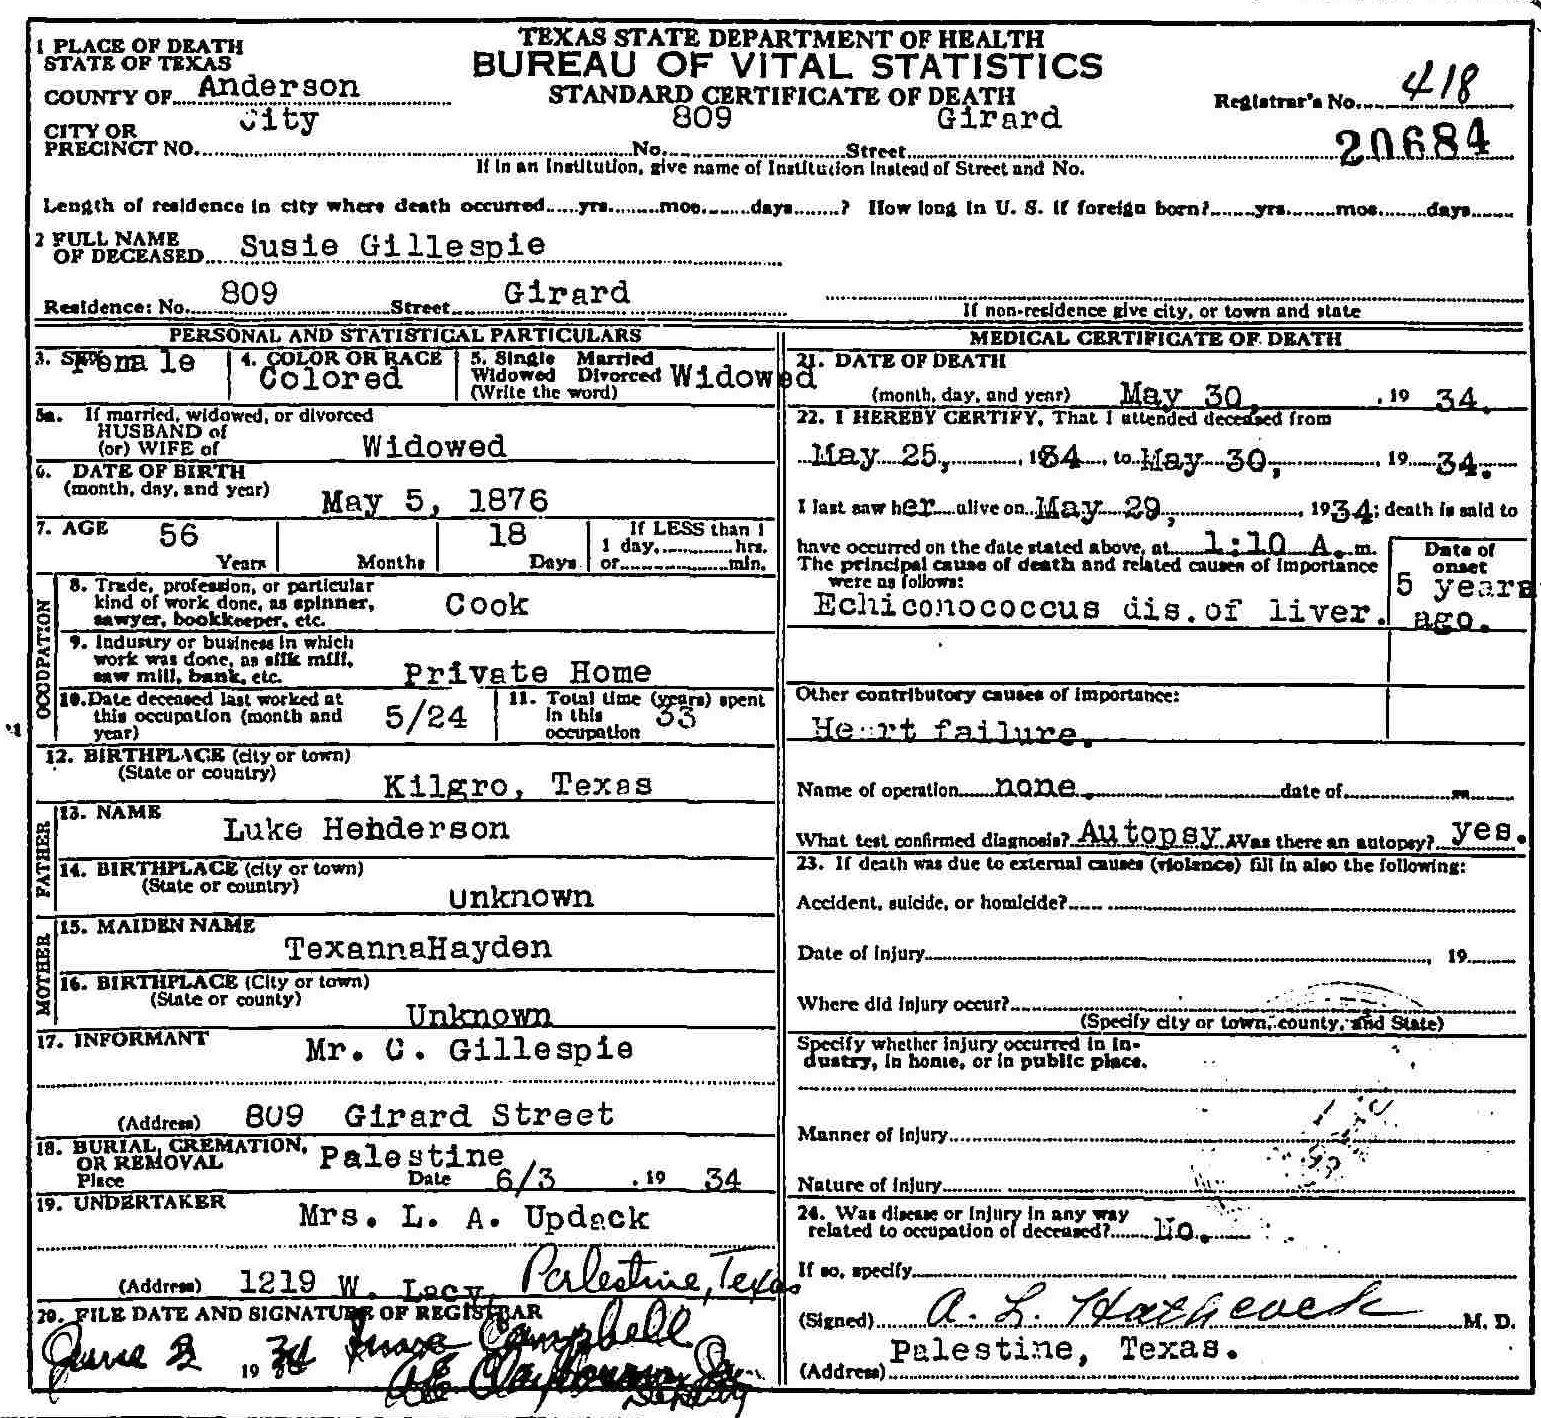 TEXAS STATE DEPARTMENT OF HEALTH
BUREAU OF VITAL STATISTICS
STANDARD CERTIFICATE OF DEATH
1 PLACE OF DEATH
STATE OF TEXAS
COUNTY OF Anderson
Registrar's No. 418
20684
CITY OR PRECINCT NO. City No. 809 Street Girard
If in an Institution, give name of Institution instead of Street and No.
Length of residence in city where death occurred yrs. mos. days ? How long in U. S. if foreign born? yrs. mos. days
2 FULL NAME OF DECEASED Susie Gillespie
Residence: No. 809 Street Girard
If non-residence give city, or town and state
PERSONAL AND STATISTICAL PARTICULARS
3. SEX Female
4. COLOR OR RACE Colored
5. Single Married Widowed Divorced (Write the word) Widowed
5a. If married, widowed, or divorced
HUSBAND of
(or) WIFE of Widowed
6. DATE OF BIRTH
(month, day, and year) May 5, 1876
7. AGE 56 Years Months 18 Days If LESS than 1
1 day, hrs.
or min.
OCCUPATION
8. Trade, profession, or particular
kind of work done, as spinner,
sawyer, bookkeeper, etc. Cook
9. Industry or business in which
work was done, as silk mill,
saw mill, bank, etc. Private Home
10. Date deceased last worked at
this occupation (month and
year) 5/24
11. Total time (years) spent
in this
occupation 33
12. BIRTHPLACE (city or town)
(State or country) Kilgro, Texas
FATHER
13. NAME Luke Henderson
14. BIRTHPLACE (city or town)
(State or country) Unknown
MOTHER
15. MAIDEN NAME TexannaHayden
16. BIRTHPLACE (City or town)
(State or county) Unknown
17. INFORMANT Mr. C. Gillespie
(Address) 809 Girard Street
18. BURIAL, CREMATION,
OR REMOVAL
Place Palestine Date 6/3, 19 34
19. UNDERTAKER Mrs. L. A. Updack
(Address) 1219 W. Lacy, Palestine, Texas
20. FILE DATE AND SIGNATURE OF REGISTRAR
June 2 1934 Campbell
Deputy
MEDICAL CERTIFICATE OF DEATH
21. DATE OF DEATH
(month, day, and year) May 30, , 19 34.
22. I HEREBY CERTIFY, That I attended deceased from
May 25, , 1934, to May 30, , 19 34.
I last saw her alive on May 29, , 1934; death is said to
have occurred on the date stated above, at 1:10 A. m.
The principal cause of death and related causes of importance
were as follows:
Date of
onset
Echiconococcus dis. of liver. 5 years
ago.
Other contributory causes of importance:
Heart failure.
Name of operation none. date of
What test confirmed diagnosis? Autopsy. Was there an autopsy? yes.
23. If death was due to external causes (violence) fill in also the following:
Accident, suicide, or homicide?
Date of injury , 19
Where did injury occur?
(Specify city or town, county, and State)
Specify whether injury occurred in in-
dustry, in home, or in public place.
Manner of injury
Nature of injury
24. Was disease or injury in any way
related to occupation of deceased? No.
If so, specify
(Signed) A. L. Hathcock M. D.
(Address) Palestine, Texas.